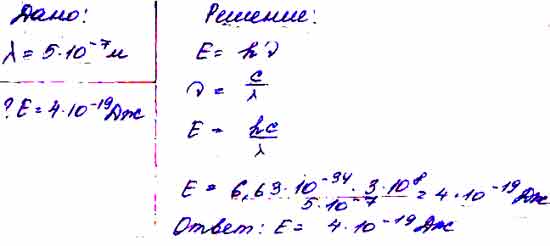 Дано:
λ = 5·10⁻⁷ м
? E = 4·10⁻¹⁹ Дж
Решение:
E = hν
ν = c/λ
E = hc/λ
E = 6,63·10⁻³⁴ · 3·10⁸ / 5·10⁻⁷ = 4·10⁻¹⁹ Дж
Ответ: E = 4·10⁻¹⁹ Дж